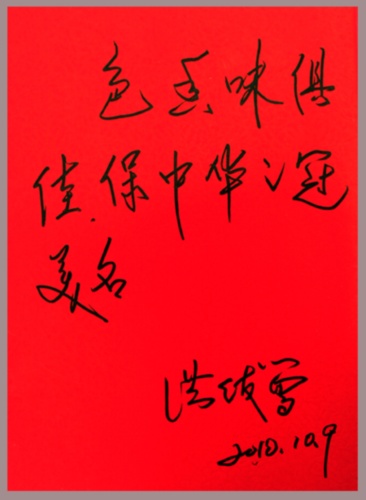 色香味俱
佳.保中华之冠
美名
洪战雪
2010.10.9